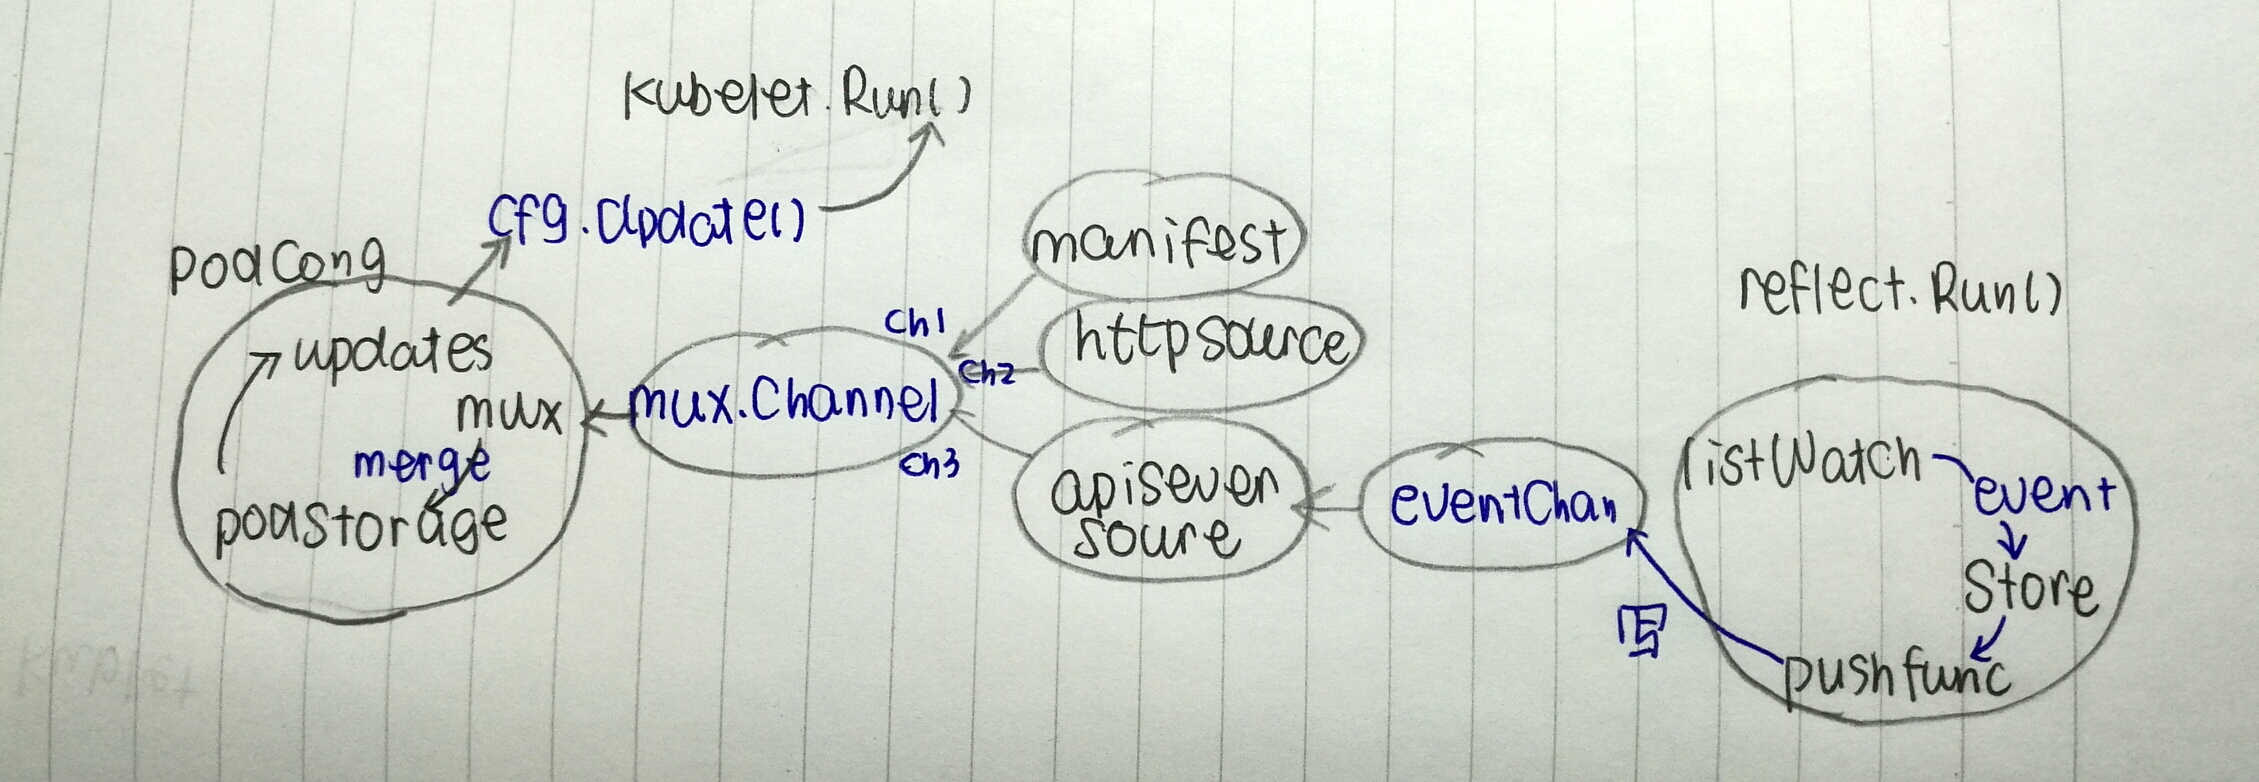 Kubelet.Run()
cfg.Update()
podCong
updates
mux
merge
podstorage
mux.Channel
ch1
ch2
ch3
manifest
httpsource
apisever
soure
eventChan
写
reflect.Run()
listWatch
event
Store
pushfunc